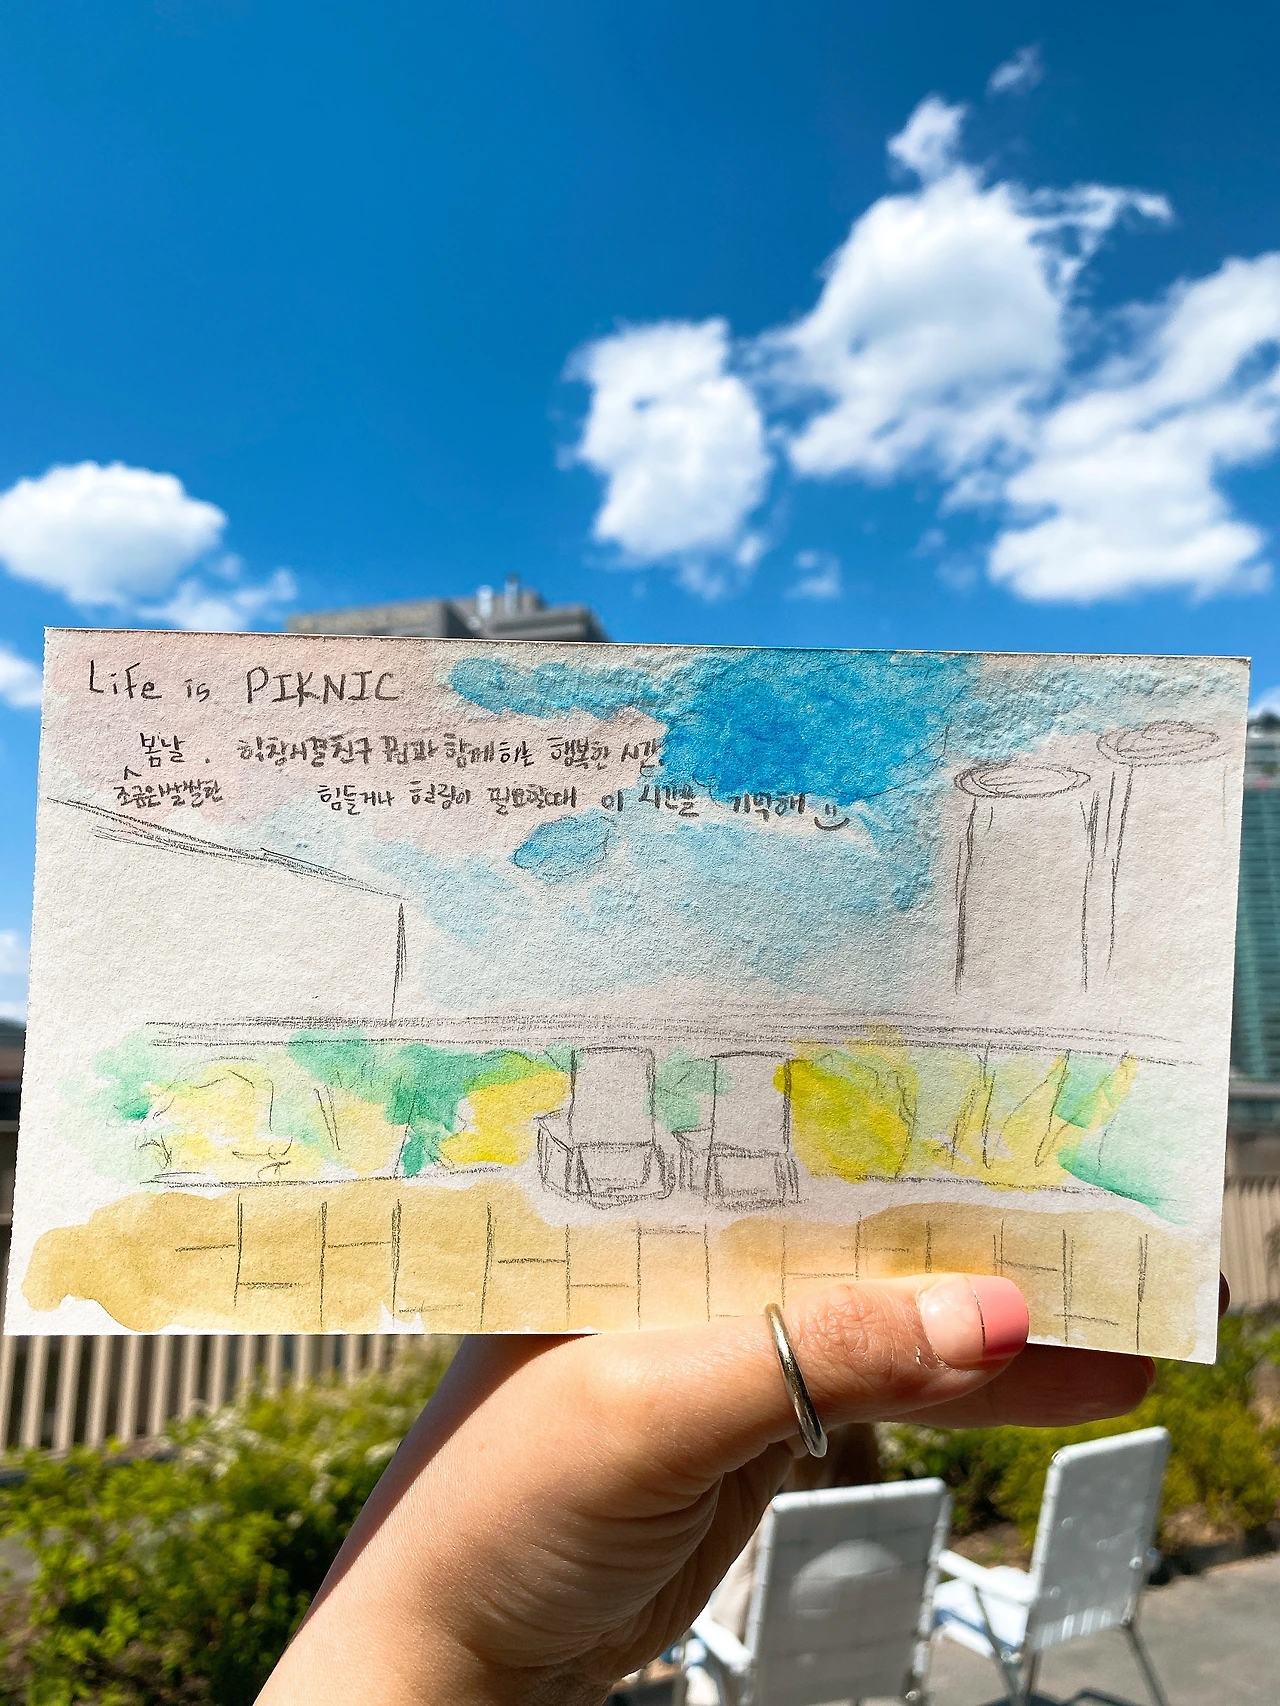 Life is PIKNIC
봄날. 학창시절친구 함께하는 행복한 시간.
조금은쌀쌀한
힘들거나 힐링이 필요할때 이 시간을 기억해